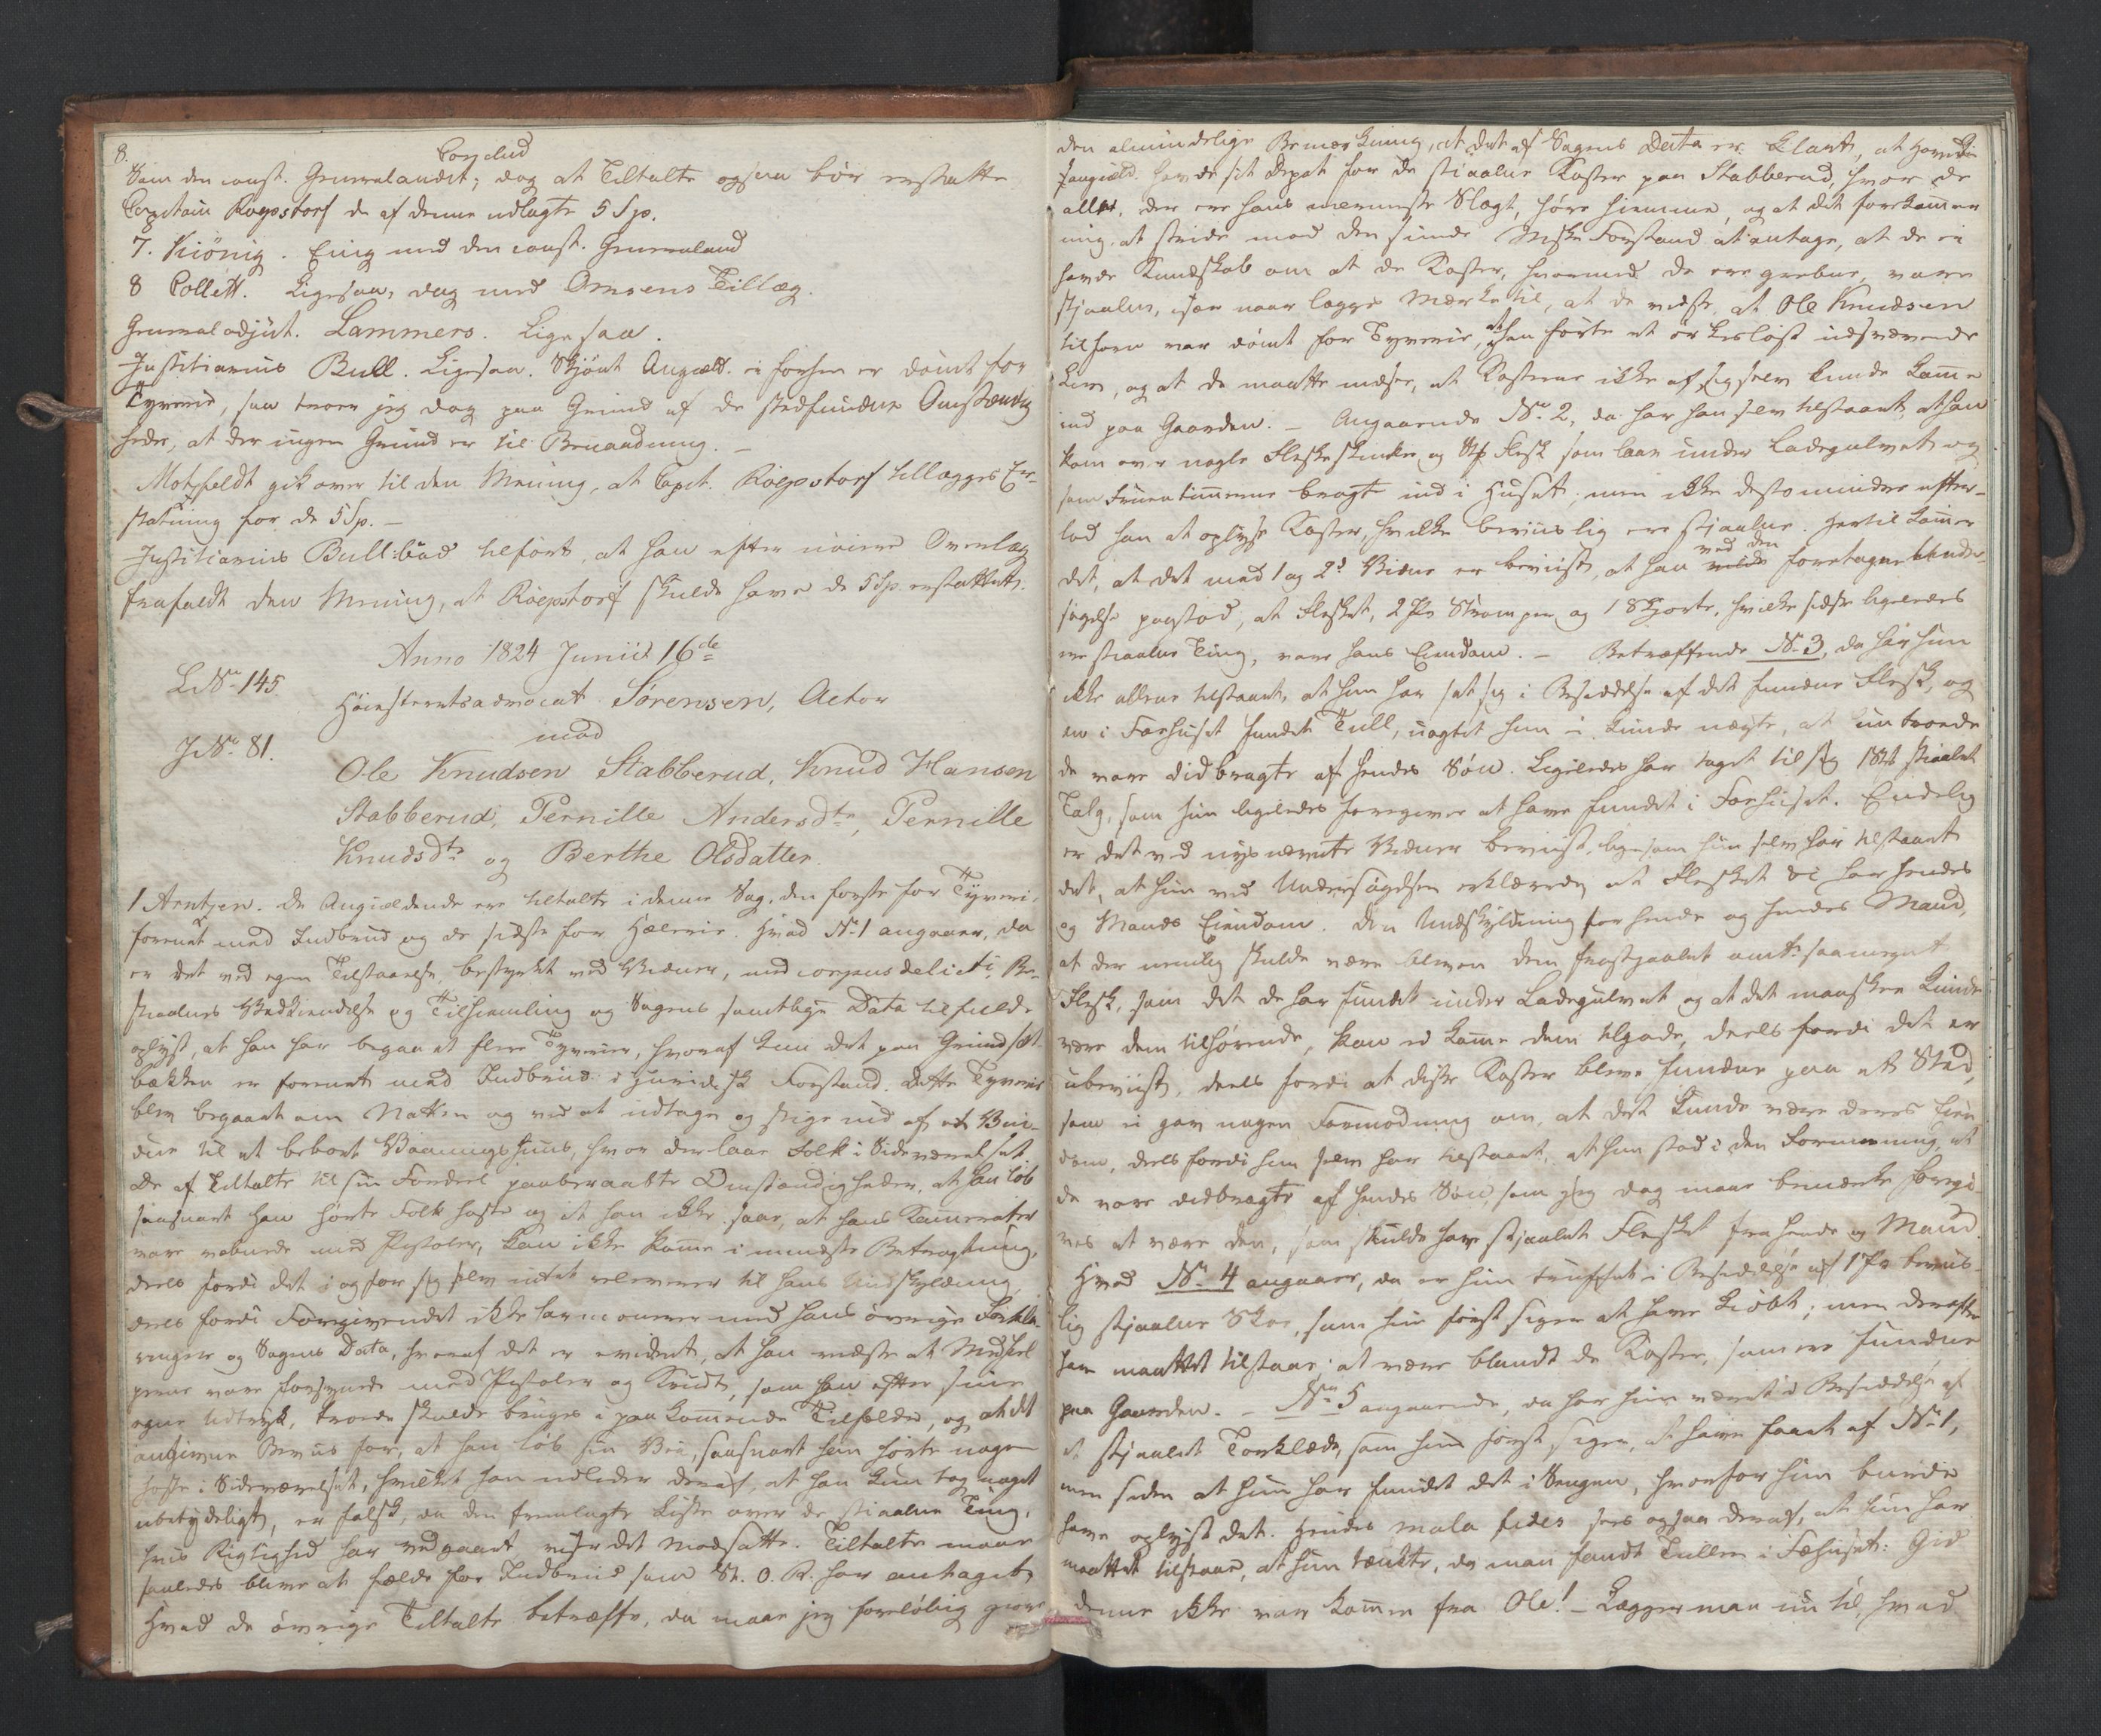 8.
Conclud
Som den const. Generalaudit; dog at Tiltalte ogsaa bør erstatte
Capitain Roepstorf de af denne udlagte 5 Sp.
7. Kiönig. Enig med den const. Generalaud
8 Collett. Ligesaa, dog med Omsens Tillæg.
Generaladjut. Lammers. Ligesaa.
Justitiarius Bull. Ligesaa. Skjönt Angield. ei forhen er dömt for
Tyverie, saa troer jeg dog paa Grund af de stedfundne Omstændig
heder, at der ingen Grund er til Benaadning. –
Motzfeldt gik over til den Mening, at Capt. Roepstorf tillægges Er-
statning for de 5 Sp. –
Justitiarius Bull bad tilfört, at han efter nöiere Overlæg
frafaldt den Mening, at Roepstorf skulde have de 5 Sp. erstattet.
Anno 1824 Junii 16de
L.No 145.
Höiesteretsadvocat Sörensen, Actor
mod
J.No 81.
Ole Knudsen Stabberud, Knud Hansen
Stabberud, Pernille Andersdtr, Pernille
Knudsdtr og Berthe Olsdatter.
1 Arntzen. De Angieldende ere tiltalte i denne Sag, den förste for Tyveri
forenet med Indbrud og de sidste for Hælerie. Hvad No 1 angaaer, da
er det ved egen Tilstaaelse, bestyrket ved Vidner, med corpus delicti, Be-
stiaalnes Vedkiendelse og Tilhiemling og Sagens samtlige Data tilfulde
oplyst, at han har begaaet flere Tyverier, hvoraf kun det paa Grindsæt
bækken er forenet med Indbrud i juridisk Forstand. Dette Tyverie
blev begaaet om Natten og ved at udtage og stige ind af et Vin-
due til et beboet Vaaningshuus, hvor der laae Folk i Sideværelset.
De af Tiltalte til sin Fordeel paaberaabte Omstændigheder, at han löb
saasnart han hörte Folk hoste og at han ikke saae, at hans Kamerater
vare væbnede med Pistoler, kan ikke komme i mindste Betragtning,
deels fordi det i og for sig selv intet releverer til hans Undskyldning
deels fordi Foregivendet ikke harmonerer med hans övrige Forkla-
ringer og Sagens Data, hvoraf det er evident, at han vidste at Medhiel
perne vare forsynede med Pistoler og Krudt, som han efter sine
egne Udtryk, troede skulde bruges i paakommende Tilfælde, og at det
angivne Beviis for, at han löb sin Vei, saasnart han hörte nogen
hoste i Sideværelset, hvilket han udleder deraf, at han kun tog noget
ubetydeligt, er falsk, da den fremlagte Liste over de stiaalne Ting,
hvis Rigtighed han vedgaaet viser det modsatte. Tiltalte maae
saaledes blive at fælde for Indbrud som St. O. R. har antaget.
Hvad de övrige Tiltalte betræffe, da maae jeg forelöbig giöre
den almindelige Bemærkning, at det af Sagens Data er klart, at Hoved
Angield. havde sit Depot for de stiaalne Koster paa Stabberud, hvor de
alle, der ere hans nærmeste Slægt, höre hiemme, og at det forekommer
mig, at stride mod den sunde Mske Forstand at antage, at de ei
havde Kundskab om at de Koster, hvormed de ere grebne, vare
stjaalne, især naar lægges Mærke til, at de vidste, at Ole Knudsen
tilforn var dömt for Tyverie, at han förte et örkeslöst udsvævende
Lev, og at de maatte indsee, at Kosterne ikke af sig selv kunde komme
ind paa Gaarden. – Angaaende No 2, da har han selv tilstaaet, at han
kom over nogle Fleskeskinker og Stk Flesk som laae under Ladegulvet og
som Fruentimmerne bragte ind i Huset; men ikke destomindre efter-
lod han at oplyse Koster, hvilke beviislig ere stjaalne. Hertil kommer
det, at det med 1 og 2d Vidne er beviist, at han ved den foretagne Under
sögelse paastod, at Flesket, 2 Par Strömper og 1 Skjorte, hvilke sidste ligeledes
ere stiaalne Ting, vare hans Eiendom. – Betræffende No 3, da har hun
ikke allene tilstaaet, at hun har sat sig i Besiddelse af det fundne Flesk, og
en i Forhuset fundet Tull, uagtet hun ei kunde nægte, at hun troede
de vare didbragte af hendes Sön. Ligeledes har taget til sig 1 Stk stiaalet
Talg, som hun ligeledes foregiver at have fundet i Forhuset. Endelig
er det ved nysnævnte Vidner beviist, ligesom hun selv har tilstaaet
det, at hun ved Undersögelsen erklærede, at Flesket &c har hendes
og Mands Eiendom. Den Undskyldning for hende og hendes Mand,
at der nemlig skulde være bleven dem frastjaalet omtr. saameget
Flesk, som det de har fundet under Ladegulvet og at det maaskee kunde
være dem tilhörende, kan ei komme dem tilgode, deels fordi det er
ubeviist, deels fordi at disse Koster bleve fundne paa et Sted,
som ei gav nogen Formodning om, at det kunde være deres Eien
dom, deels fordi hun selv har tilstaaet, at hun stod i den Formening, at
de vare didbragte af hendes Sön, som jeg dog maae bemærke foregi-
ves at være den, som skulde have stjaalet Flesket fra hende og Mand.
Hvad No 4 angaaer, da er hun truffet i Besiddelse af 1 Pr beviis-
lig stjaalne Skoe, som hun först siger at have kiöbt; men derefter
har maattet tilstaae, at være blandt de Koster, som ere fundne
paa Gaarden. – No 5 angaaende, da har hun været i Besiddelse af
et stjaalet Torklæde, som hun först siger, at have faaet af No 1,
men siden at hun har fundet det i Sengen, hvorfor hun burde
have oplyst det. Hendes mala fides sees ogsaa deraf, at hun har
maattet tilstaae, at hun tænkte, da man fandt Tullen i Fæhuset: Gid
denne ikke var kommen fra Ole! – Lægger man nu til, hvad